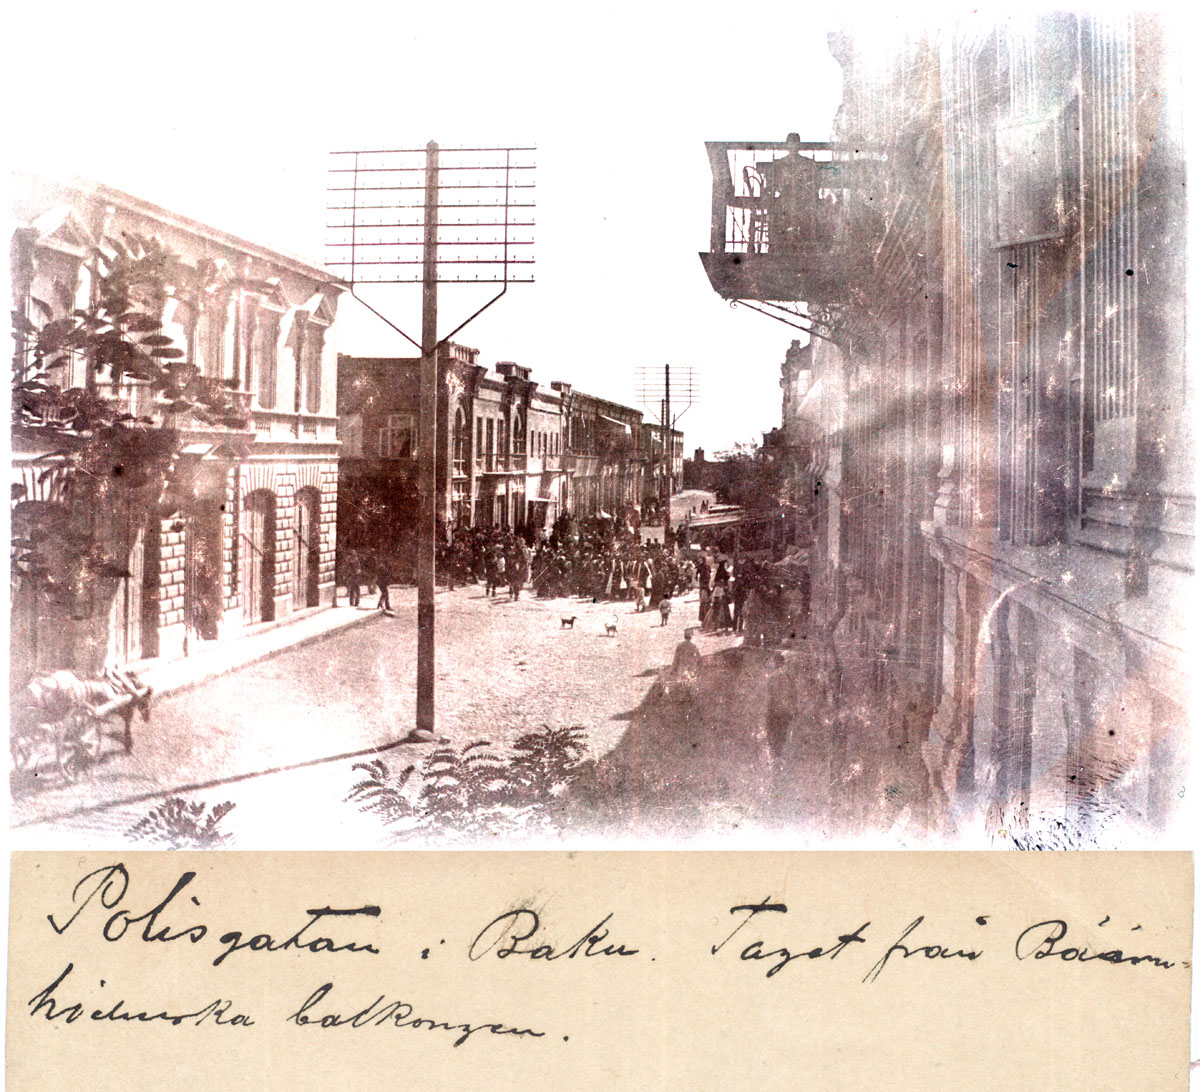 Polisgatan i Baku. Taget från Bäärn=
hielmska balkongen.